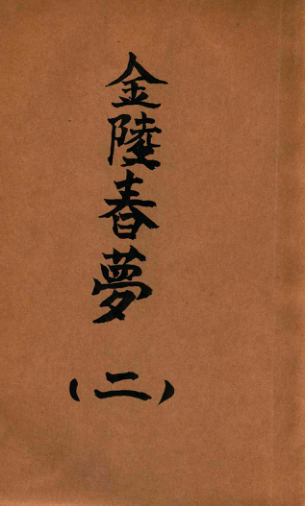 金陸春夢(二)